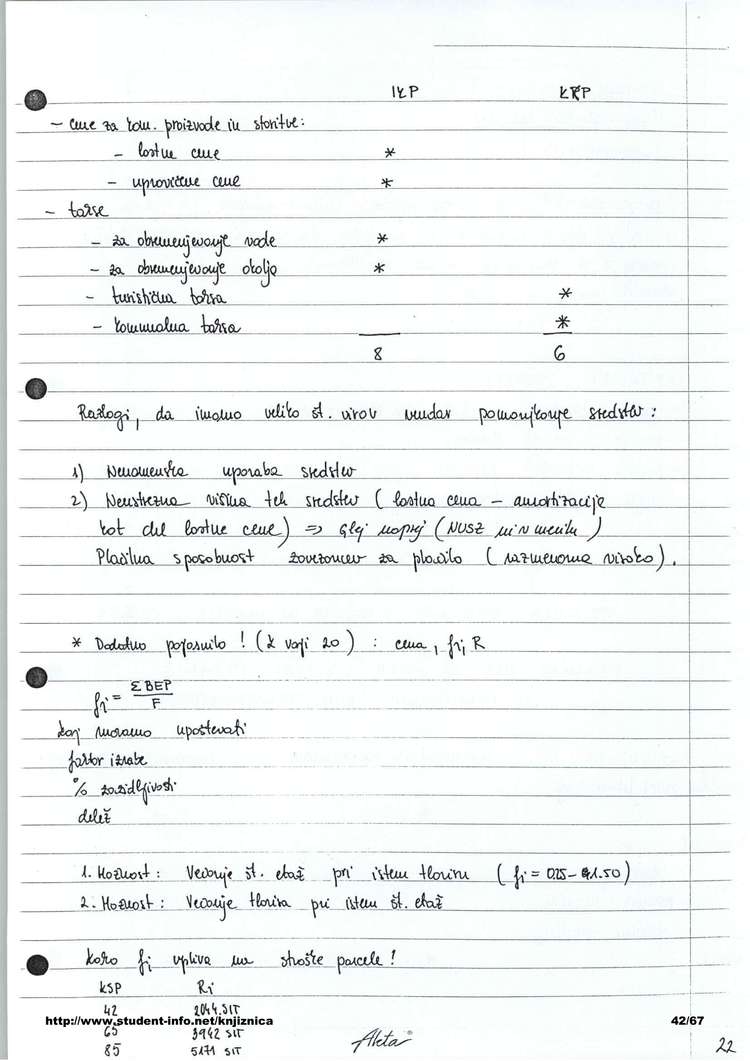 IKP KRP
- cene za kom. proizvode in storitve:
- lastne cene *
- upravičene cene *
- takse
- za obremenjevanje vode *
- za obremenjevanje okolja *
- turistična taksa *
- komunalna taksa *
8 6
Razlogi, da imamo veliko št. virov vendar pomanjkanje sredstev:
1) Nenamenska uporaba sredstev
2) Neustrezna višina teh sredstev (lastna cena - amortizacije
kot del lastne cene) => Glej naprej (NUSZ ni v meniku)
Plačilna sposobnost zavezancev za plačilo (razmeroma visoko).
* Dodatno pojasnilo! (k vaji 20): cena, fi, R
fi = Σ BEP / F
kaj moramo upoštevati
faktor izrabe
% zazidljivosti
delež
1. Možnost: Večanje št. etaž pri istem tlorisu (fi = 0.25 - 1.50)
2. Možnost: Večanje tlorisa pri istem št. etaž
Kako fi vpliva na stroške parcele!
KSP Ri
42 2044.SIT
http://www.student-info.net/knjiznica 42/67
65 3942 SIT
85 5171 SIT
Aleta 22